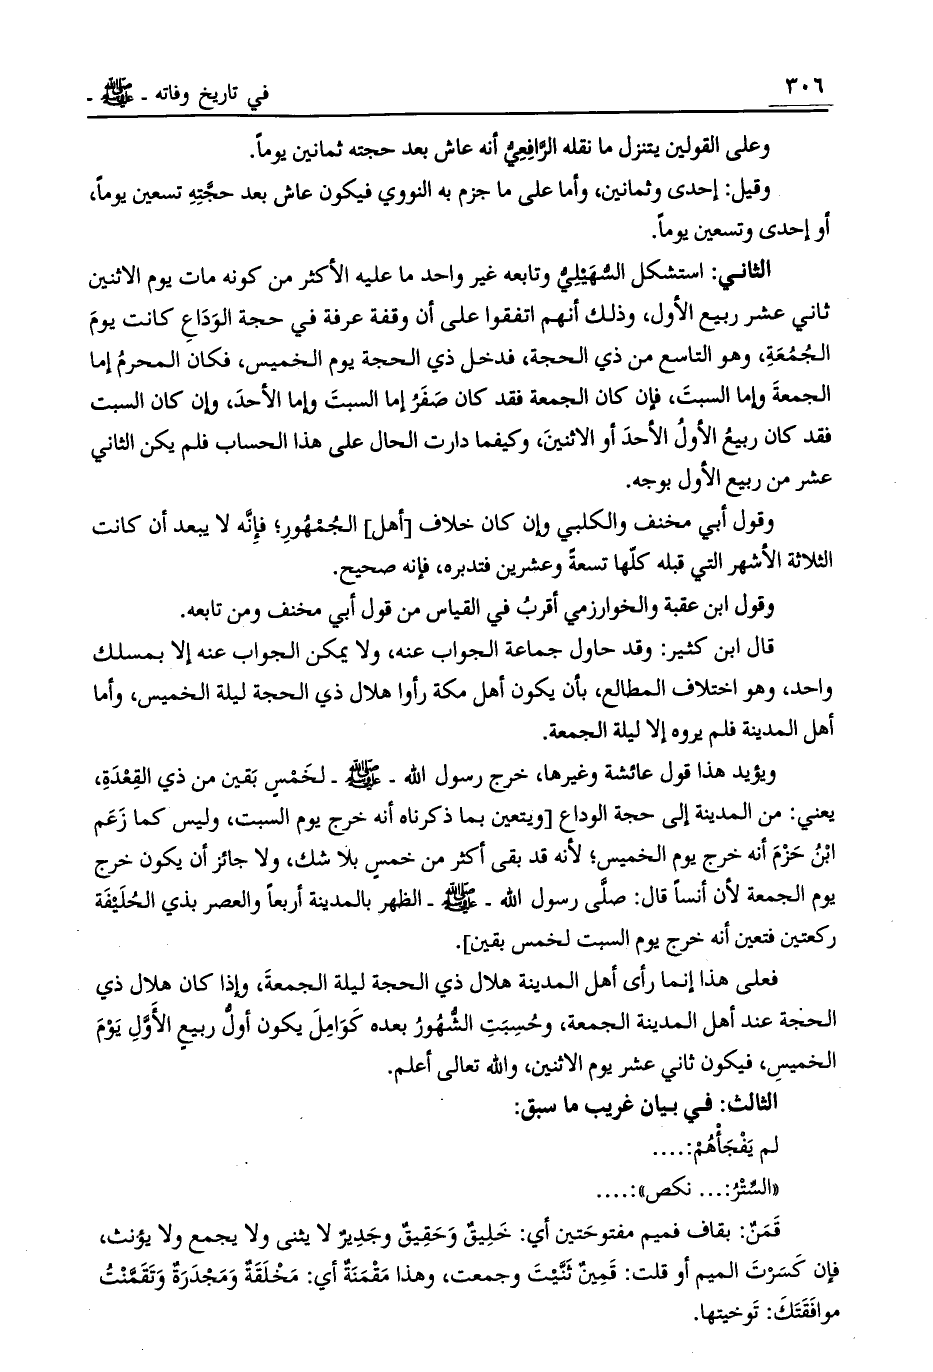 ٣٠٦
في تاريخ وفاته ـ ﷺ ـ
وعلى القولين يتنزل ما نقله الرَّافِعِيُّ أنه عاش بعد حجته ثمانين يوماً.
وقيل: إحدى وثمانين، وأما على ما جزم به النووي فيكون عاش بعد حجَّتِهِ تسعين يوماً،
أو إحدى وتسعين يوماً.
الثاني: استشكل السُّهَيْلِيُّ وتابعه غير واحد ما عليه الأكثر من كونه مات يوم الاثنين
ثاني عشر ربيع الأول، وذلك أنهم اتفقوا على أن وقفة عرفة في حجة الوَدَاعِ كانت يومَ
الجُمُعَةِ، وهو التاسع من ذي الحجة، فدخل ذي الحجة يوم الخميس، فكان المحرمُ إما
الجمعةَ وإما السبتَ، فإن كان الجمعة فقد كان صَفَرُ إما السبتَ وإما الأحدَ، وإن كان السبت
فقد كان ربيعُ الأولُ الأحدَ أو الاثنينَ، وكيفما دارت الحال على هذا الحساب فلم يكن الثاني
عشر من ربيع الأول بوجه.
وقول أبي مخنف والكلبي وإن كان خلاف [أهل] الجُمْهُورِ؛ فإِنَّه لا يبعد أن كانت
الثلاثة الأشهر التي قبله كلّها تسعةً وعشرين فتدبره، فإنه صحيح.
وقول ابن عقبة والخوارزمي أقربُ في القياس من قول أبي مخنف ومن تابعه.
قال ابن كثير: وقد حاول جماعة الجواب عنه، ولا يمكن الجواب عنه إلا بمسلك
واحد، وهو اختلاف المطالع، بأن يكون أهل مكة رأوا هلال ذي الحجة ليلة الخميس، وأما
أهل المدينة فلم يروه إلا ليلة الجمعة.
ويؤيد هذا قول عائشة وغيرها، خرج رسول الله ـ ﷺ ـ لخَمْسٍ بَقين من ذي القِعْدَةِ،
يعني: من المدينة إلى حجة الوداع [ويتعين بما ذكرناه أنه خرج يوم السبت، وليس كما زَعَم
ابْنُ حَزْمَ أنه خرج يوم الخميس؛ لأنه قد بقى أكثر من خمسٍ بلا شك، ولا جائز أن يكون خرج
يوم الجمعة لأن أنساً قال: صلَّى رسول الله ـ ﷺ ـ الظهر بالمدينة أربعاً والعصر بذي الحُلَيْفَة
ركعتين فتعين أنه خرج يوم السبت لخمس بقين].
فعلى هذا إنما رأى أهل المدينة هلال ذي الحجة ليلة الجمعةَ، وإذا كان هلال ذي
الحجة عند أهل المدينة الجمعة، وحُسِبَتِ الشُّهُورُ بعده كَوَامِلَ يكون أولُ ربيعٍ الأَوَّلِ يَوْمَ
الخميسِ، فيكون ثاني عشر يوم الاثنين، والله تعالى أعلم.
الثالث: في بيان غريب ما سبق:
لم يَفْجَأْهُمْ:....
«السِّتْرُ:... نكص»:....
قَمَنٌ: بقاف فميم مفتوحَتين أي: خَلِيقٌ وَحَقِيقٌ وجَدِيرٌ لا يثنى ولا يجمع ولا يؤنث،
فإن كَسَرْتَ الميم أو قلت: قَمِينٌ ثَنَّيْتَ وجمعت، وهذا مَقْمَنَةٌ أي: مَخْلَقَةٌ وَمَجْدَرَةٌ وَتَقَمَّنْتُ
موافَقَتَكَ: تَوخيتها.